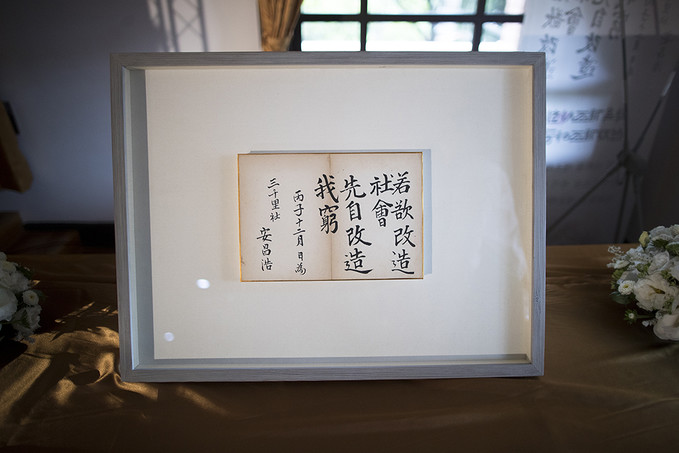 若欲改造
社會
先自改造
我窮
丙子十二月 日為
三千里社 安昌浩